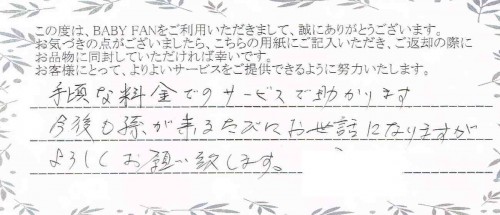 この度は、BABY FANをご利用いただきまして、誠にありがとうございます。
お気づきの点がございましたら、こちらの用紙にご記入いただき、ご返却の際に
お品物に同封していただければ幸いです。
お客様にとって、よりよいサービスをご提供できるように努力いたします。
手頃な料金でのサービスで助かります
今後も孫が来るたびにお世話になりますが
よろしくお願い致します。